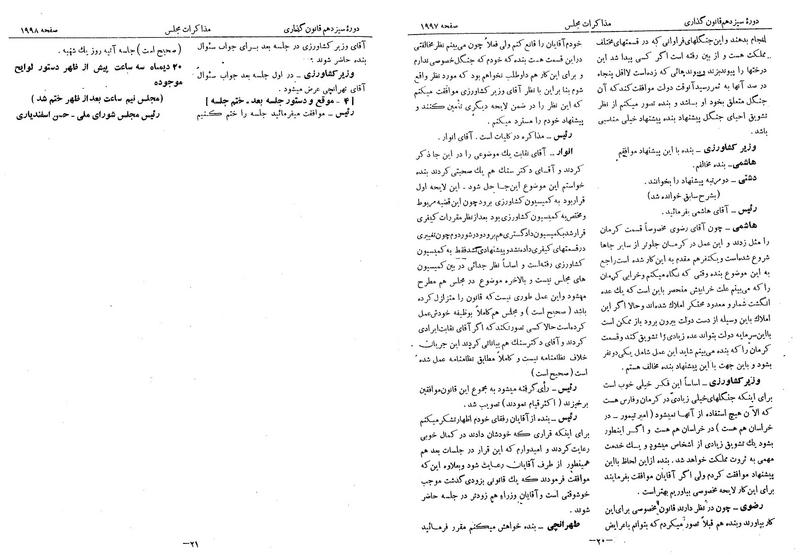 دورهٔ سیزدهم قانون گذاری
مذاکرات مجلس
صفحه ۱۹۹۷
انجام بدهند و این جنگلهای فراوانی که در قسمتهای مختلف
مملکت هست و از بین رفته است اگر کسی پیدا شد این
درختها را پیوند بزند و پیوندهائی که زده است لااقل پنجاه
در صد آنها به ثمر رسید آنوقت دولت موافقت کند که آن
جنگل متعلق بخود او باشد و بنده تصور میکنم از نظر
تشویق احیای جنگل پیشنهاد بنده پیشنهاد خیلی مناسبی
باشد .
وزیر کشاورزی ـ بنده با این پیشنهاد موافقم
هاشمی ـ بنده مخالفم.
دشتی ـ دومرتبه پیشنهاد را بخوانند.
(بشرح سابق خوانده شد)
رئیس ـ آقای هاشمی بفرمائید.
هاشمی ـ چون آقای رضوی مخصوصاً قسمت کرمان
را مثل زدند و این عمل در کرمان جلوتر از سایر جاها
شروع شده است ویکنفر هم مقدم به این کار شده است راجع
به این موضوع بنده وقتی که نگاه میکنم وخرابی کرمان
را که می‌بینم علت خرابیش منحصر باین است که یک عده
انگشت شمار و معدود محتکر املاک شده‌اند و حالا اگر این
املاک باین وسیله از دست دولت بیرون برود باز ممکن است
بااین سرمایه دولت بتواند عده زیادی را تشویق کند وقسمت
کرمان را که بنده می‌بینم شاید این عمل شامل یکی دو نفر
بشود و باین جهت با این پیشنهاد بنده مخالف هستم .
وزیر کشاورزی ـ اساساً این فکر خیلی خوب است
برای اینکه جنگلهای خیلی زیادی در کرمان و فارس هست
که الآن هیچ استفاده از آنها نمیشود (امیر تیمور ـ در
خراسان هم هست) در خراسان هم هست و اگر اینطور
بشود یک تشویق زیادی از اشخاص میشود و یک خدمت
مهمی به ثروت مملکت خواهد شد. بنده از این لحاظ بااین
پیشنهاد موافقت کردم ولی اگر آقایان موافقت بفرمایند
برای این کار لایحه مخصوصی بیاوریم بهتر است .
رضوی ـ چون در نظر دارند قانون مخصوصی برای این
کار بیاورند و بنده هم قبلاً تصور میکردم که بتوانم با عرایض
خودم آقایان را قانع کنم ولی فعلاً چون می‌بینم نظر مخالفتی
در این قسمت هست بنده که خودم که جنگل خصوصی ندارم
و برای این کار هم داوطلب نخواهم بود که مورد نظر واقع
شوم بنابر این با نظر آقای وزیر کشاورزی موافقت میکنم
که این نظر را در ضمن لایحه دیگری تأمین کنند و
پیشنهاد خودم را مسترد میکنم .
رئیس ـ مذاکره در کلیات است . آقای انوار .
انوار ـ آقای نقابت یک موضوعی را در این جا ذکر
کردند و آقای دکتر سنگ هم یک صحبتی کردند بنده
خواستم این موضوع این‌جا حل شود . این لایحه اول
قرار بود به کمیسیون کشاورزی برود چون این قضیه مربوط
و مختص به کمیسیون کشاورزی بود بعد از نظر مقررات کیفری
قرار شد بکمیسیون دادگستری هم برود در شور دوم چون تغییری
در قسمتهای کیفری داده نشد و پیشنهادی نشد فقط به کمیسیون
کشاورزی رفته است و اساساً نظر جدائی در بین کمیسیون
های مجلس نیست و بالاخره موضوع در مجلس هم مطرح
میشود و این عمل طوری نیست که قانون را متزلزل کرده
باشد (صحیح است) و مجلس هم کاملاً بوظیفه خودش عمل
کرده است حالا کسی تصور نکند که اگر آقای نقابت ایرادی
کردند و آقای دکتر سنگ هم بیاناتی کردند این جریان
خلاف نظامنامه نیست و کاملاً مطابق نظامنامه عمل شده
است (صحیح است)
رئیس ـ رأی گرفته میشود به مجموع این قانون موافقین
برخیزند (اکثر قیام نمودند) تصویب شد .
رئیس ـ بنده از آقایان رفقای خودم اظهار تشکر میکنم
برای اینکه قراری که خودشان دادند در کمال خوبی
رعایت کردند و امیدوارم که این قرار در جلسات بعد هم
همینطور از طرف آقایان رعایت شود و بعلاوه این که
موافقت فرمودند که یک قانونی بزودی گذشت موجب
خوشوقتی است و آقایان وزراء هم زودتر در جلسه حاضر
شوند .
طهرانچی ـ بنده خواهش میکنم مقرر فرمائید
ـ۲۰ـ
دورهٔ سیزدهم قانون گذاری
مذاکرات مجلس
صفحه ۱۹۹۸
آقای وزیر کشاورزی در جلسه بعد برای جواب سئوال
بنده حاضر شوند .
وزیر کشاورزی ـ در اول جلسه بعد جواب سئوال
آقای تهرانچی عرض میشود .
[ ۴ ـ موقع و دستور جلسه بعد ـ ختم جلسه ]
رئیس ـ موافقت میفرمائید جلسه را ختم کنیم
(صحیح است) جلسه آتیه روز یک شنبه .
۲۰ دیماه سه ساعت پیش از ظهر دستور لوایح
موجوده
(مجلس نیم ساعت بعد از ظهر ختم شد)
رئیس مجلس شورای ملی ـ حسن اسفندیاری
ـ۲۱ـ